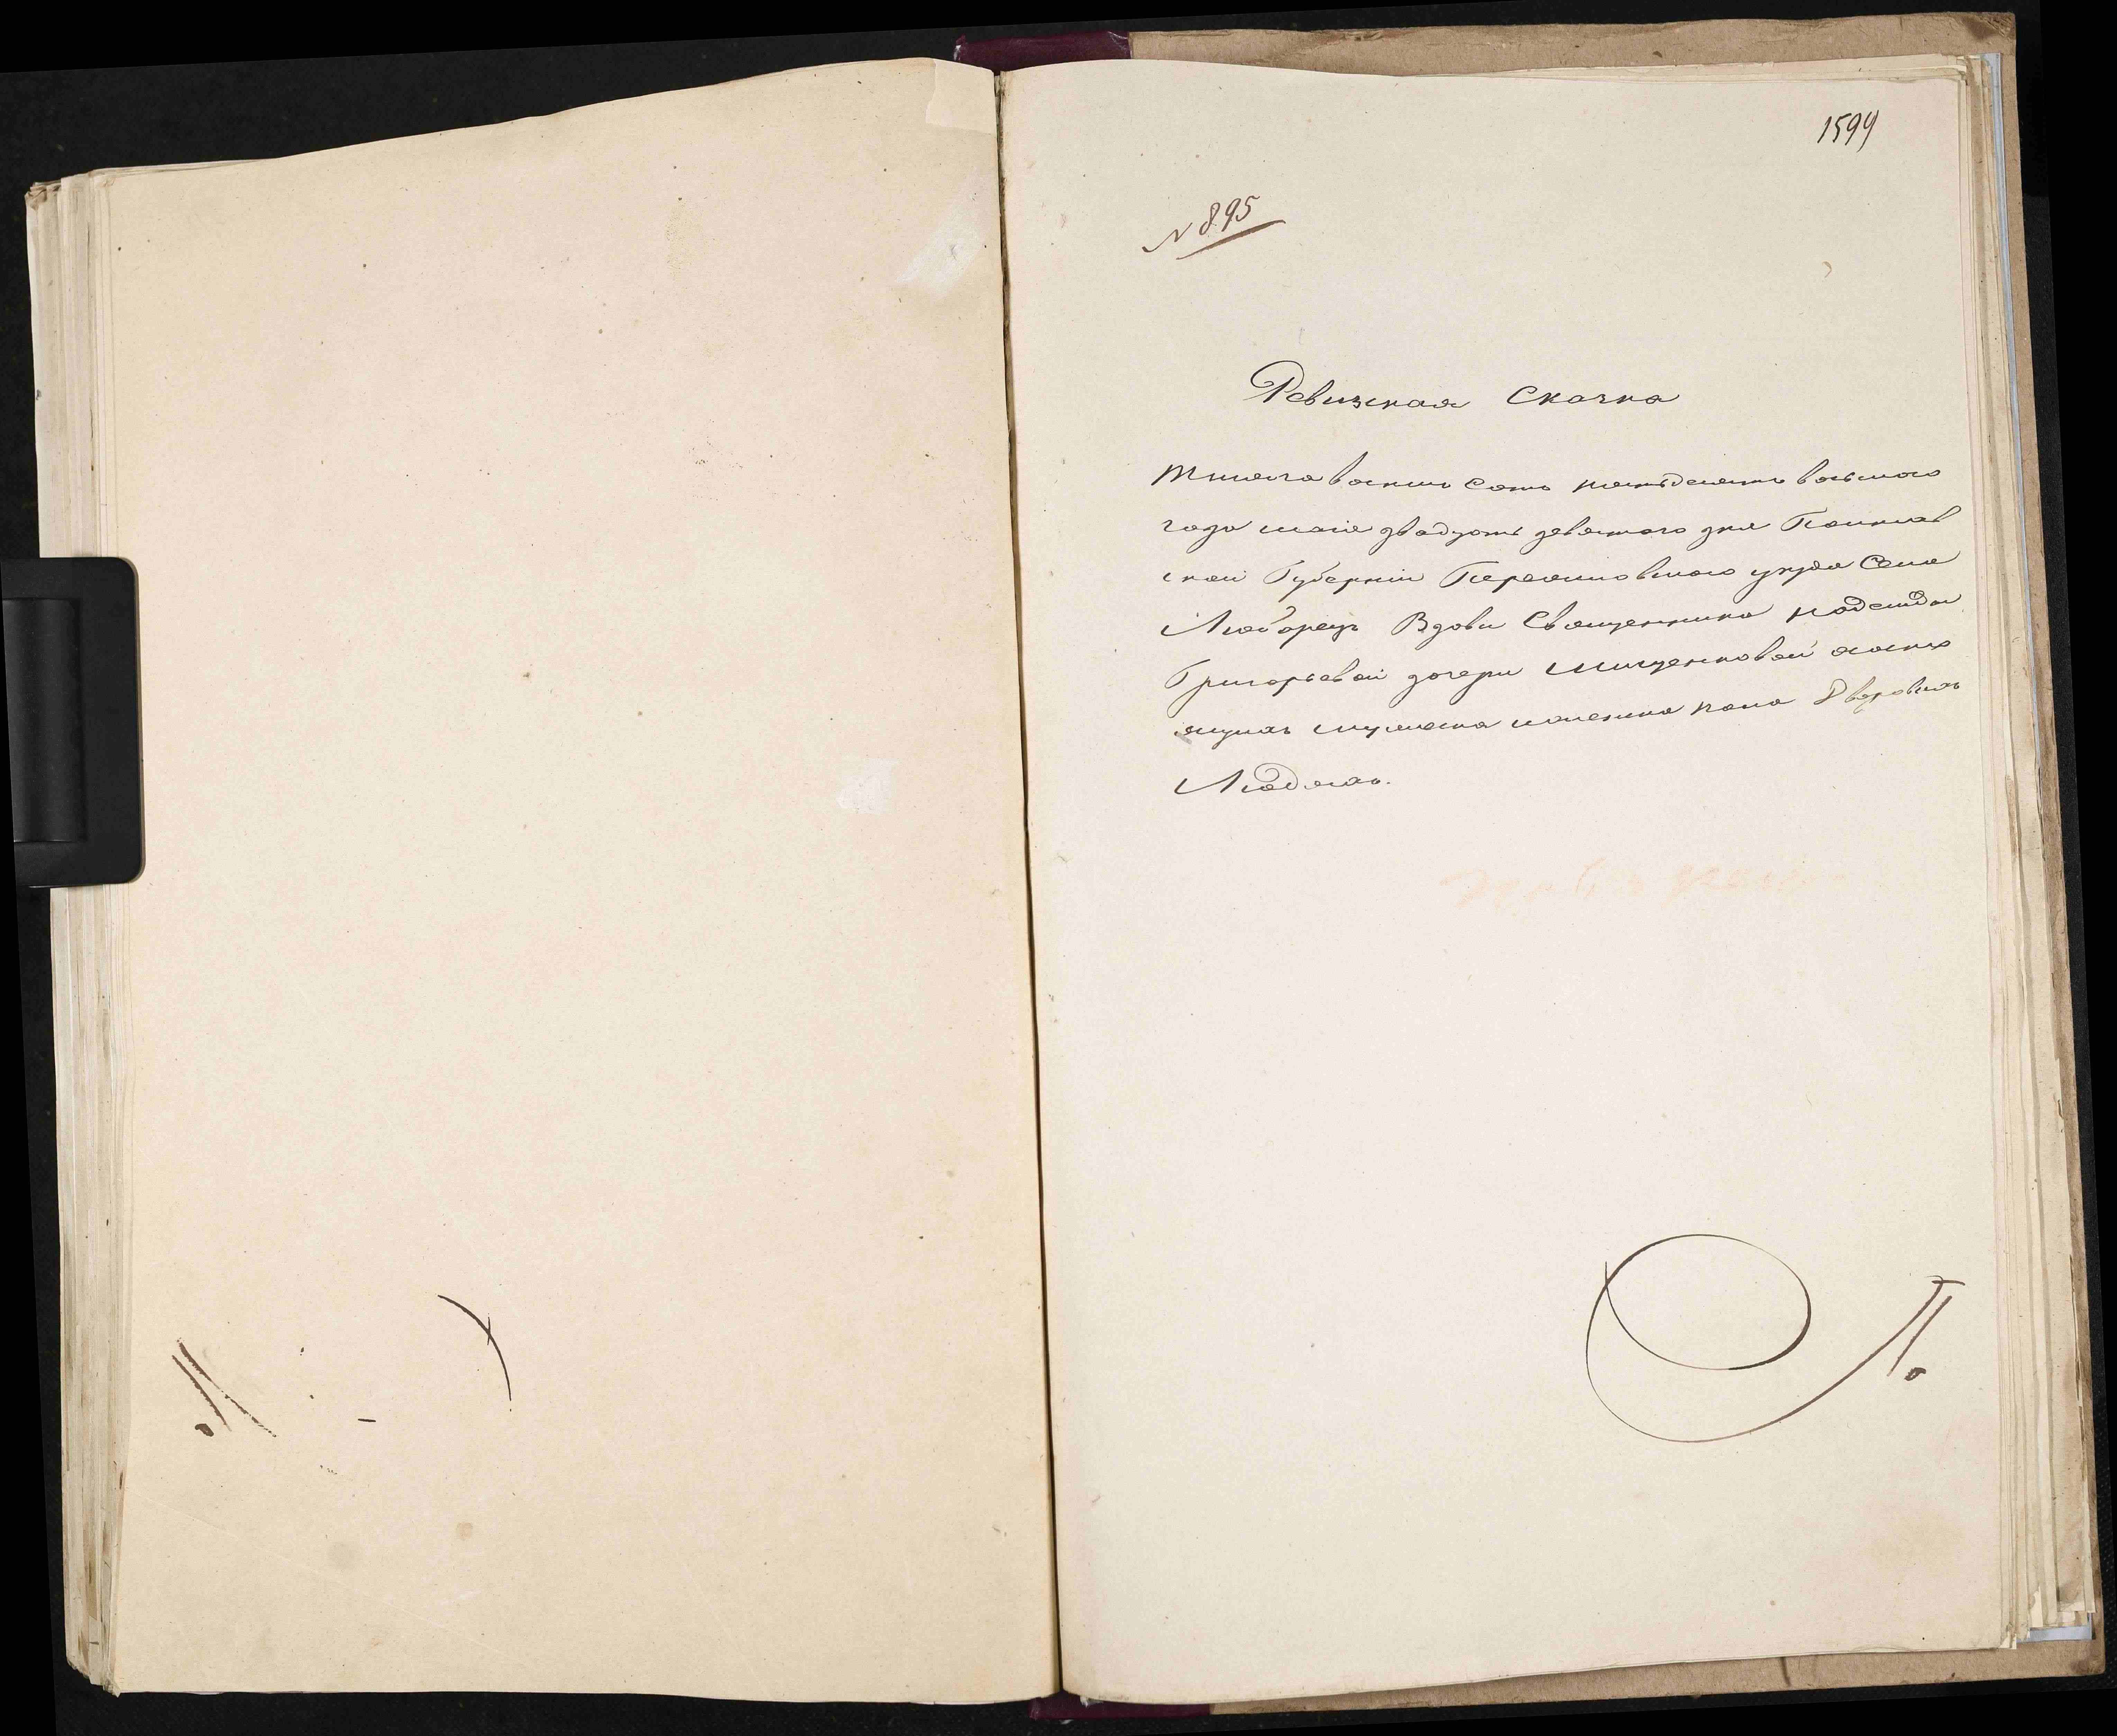 1599
N 895
Ревизская Сказка
Тысяча восемь сотъ пятьдесятъ восьмого
года маія двадцать девятого дня Полтав
ской Губерніи Переяславского уезда Села
Вдови Священника Надежди
Григорьевой дочери Мищенковой о состо
ящихъ мужеска и женска пола Дворовихъ
Людяхъ.
П.